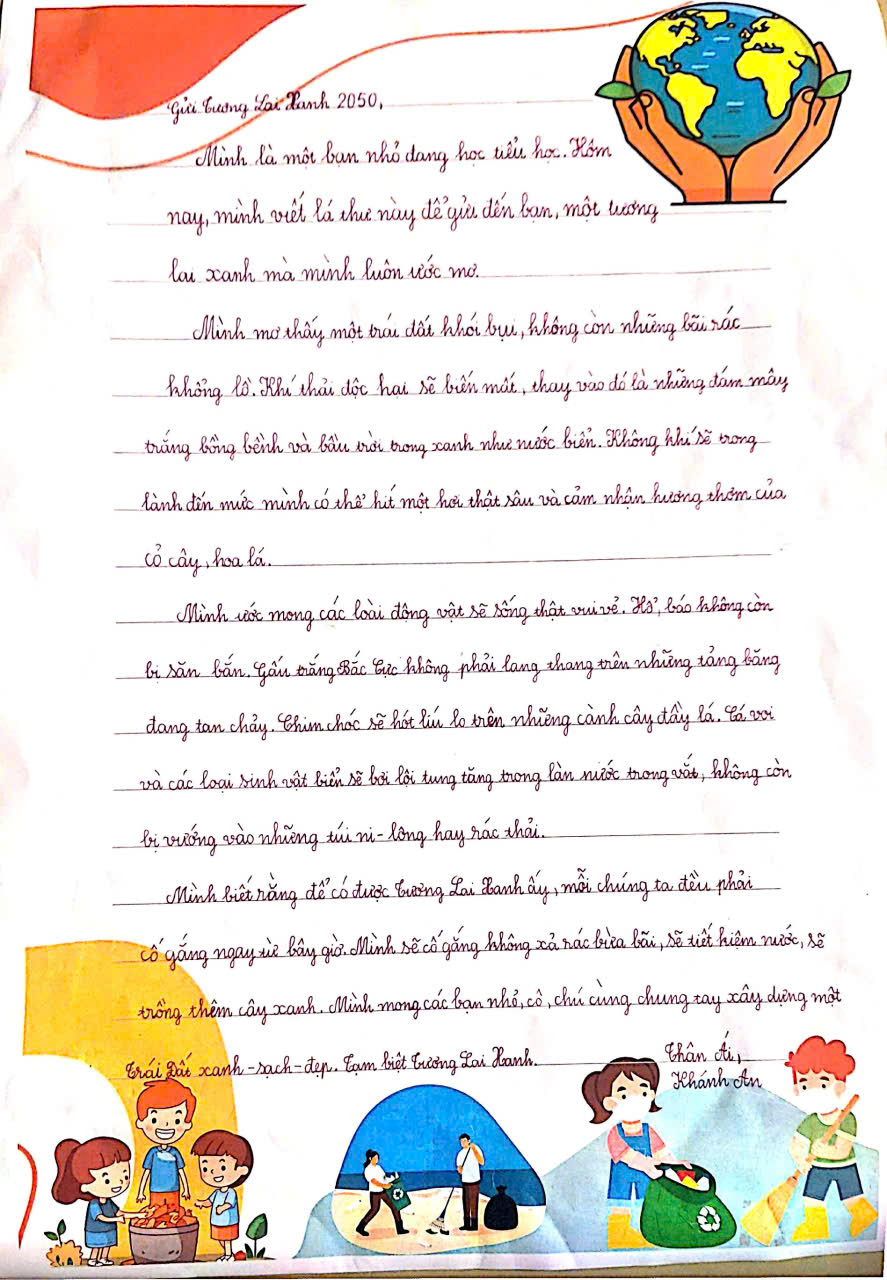 Gửi Tương Lai Xanh 2050,
Mình là một bạn nhỏ đang học tiểu học. Hôm
nay, mình viết lá thư này để gửi đến bạn, một tương
lai xanh mà mình luôn ước mơ.
Mình mơ thấy một trái đất khói bụi, không còn những bãi rác
khổng lồ. Khí thải độc hại sẽ biến mất, thay vào đó là những đám mây
trắng bồng bềnh và bầu trời trong xanh như nước biển. Không khí sẽ trong
lành đến mức mình có thể hít một hơi thật sâu và cảm nhận hương thơm của
cỏ cây, hoa lá.
Mình ước mong các loài động vật sẽ sống thật vui vẻ. Hổ, báo không còn
bị săn bắn. Gấu trắng Bắc Cực không phải lang thang trên những tảng băng
đang tan chảy. Chim chóc sẽ hót líu lo trên những cành cây đầy lá. Cá voi
và các loại sinh vật biển sẽ bơi lội tung tăng trong làn nước trong vắt, không còn
bị vướng vào những túi ni-lông hay rác thải.
Mình biết rằng để có được Tương Lai Xanh ấy, mỗi chúng ta đều phải
cố gắng ngay từ bây giờ. Mình sẽ cố gắng không xả rác bừa bãi, sẽ tiết kiệm nước, sẽ
trồng thêm cây xanh. Mình mong các bạn nhỏ, cô, chú cùng chung tay xây dựng một
Trái Đất xanh-sạch-đẹp. Tạm biệt Tương Lai Xanh.
Thân Ái,
Khánh An